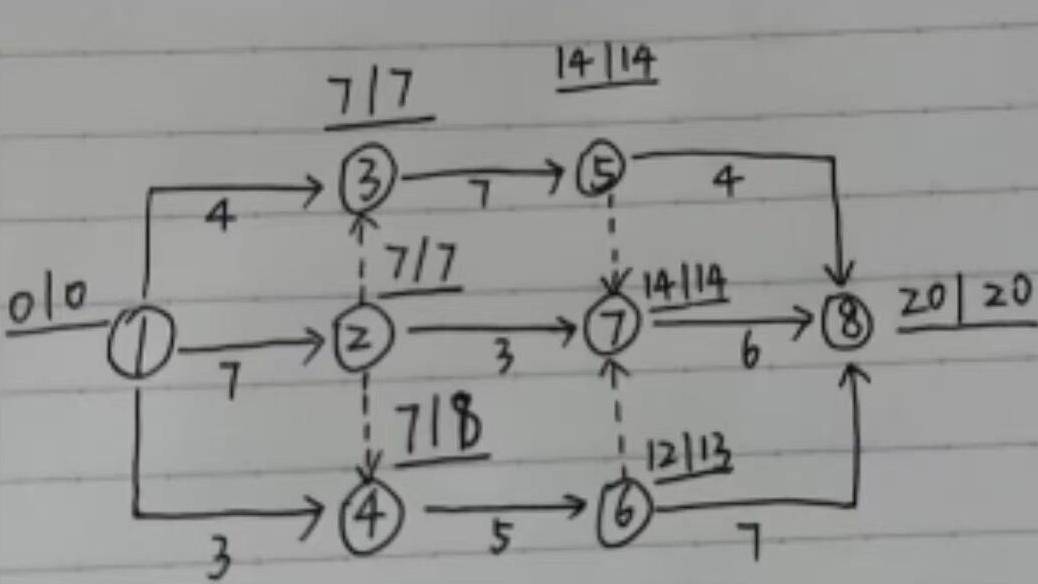 7|7 14|14
③ 7 ⑤ 4
4
0|0 7|7 14|14 20|20
① 7 ② 3 ⑦ 6 ⑧
7|8 12|13
3 ④ 5 ⑥ 7